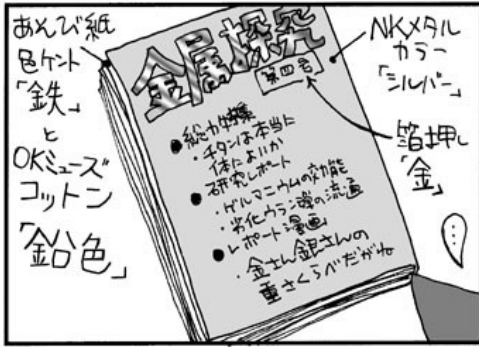 あそび紙
色ケント
「鉄」
と
OKミューズ
コットン
「鉛色」
金属探究
第四号
●総力特集
・チタンは本当に
体によいか
●研究レポート
・ゲルマニウムの効能
・劣化ウラン弾の流通
●レポート漫画
・金さん銀さんの
重さくらべだがね
NKメタル
カラー
「シルバー」
箔押し
「金」
…